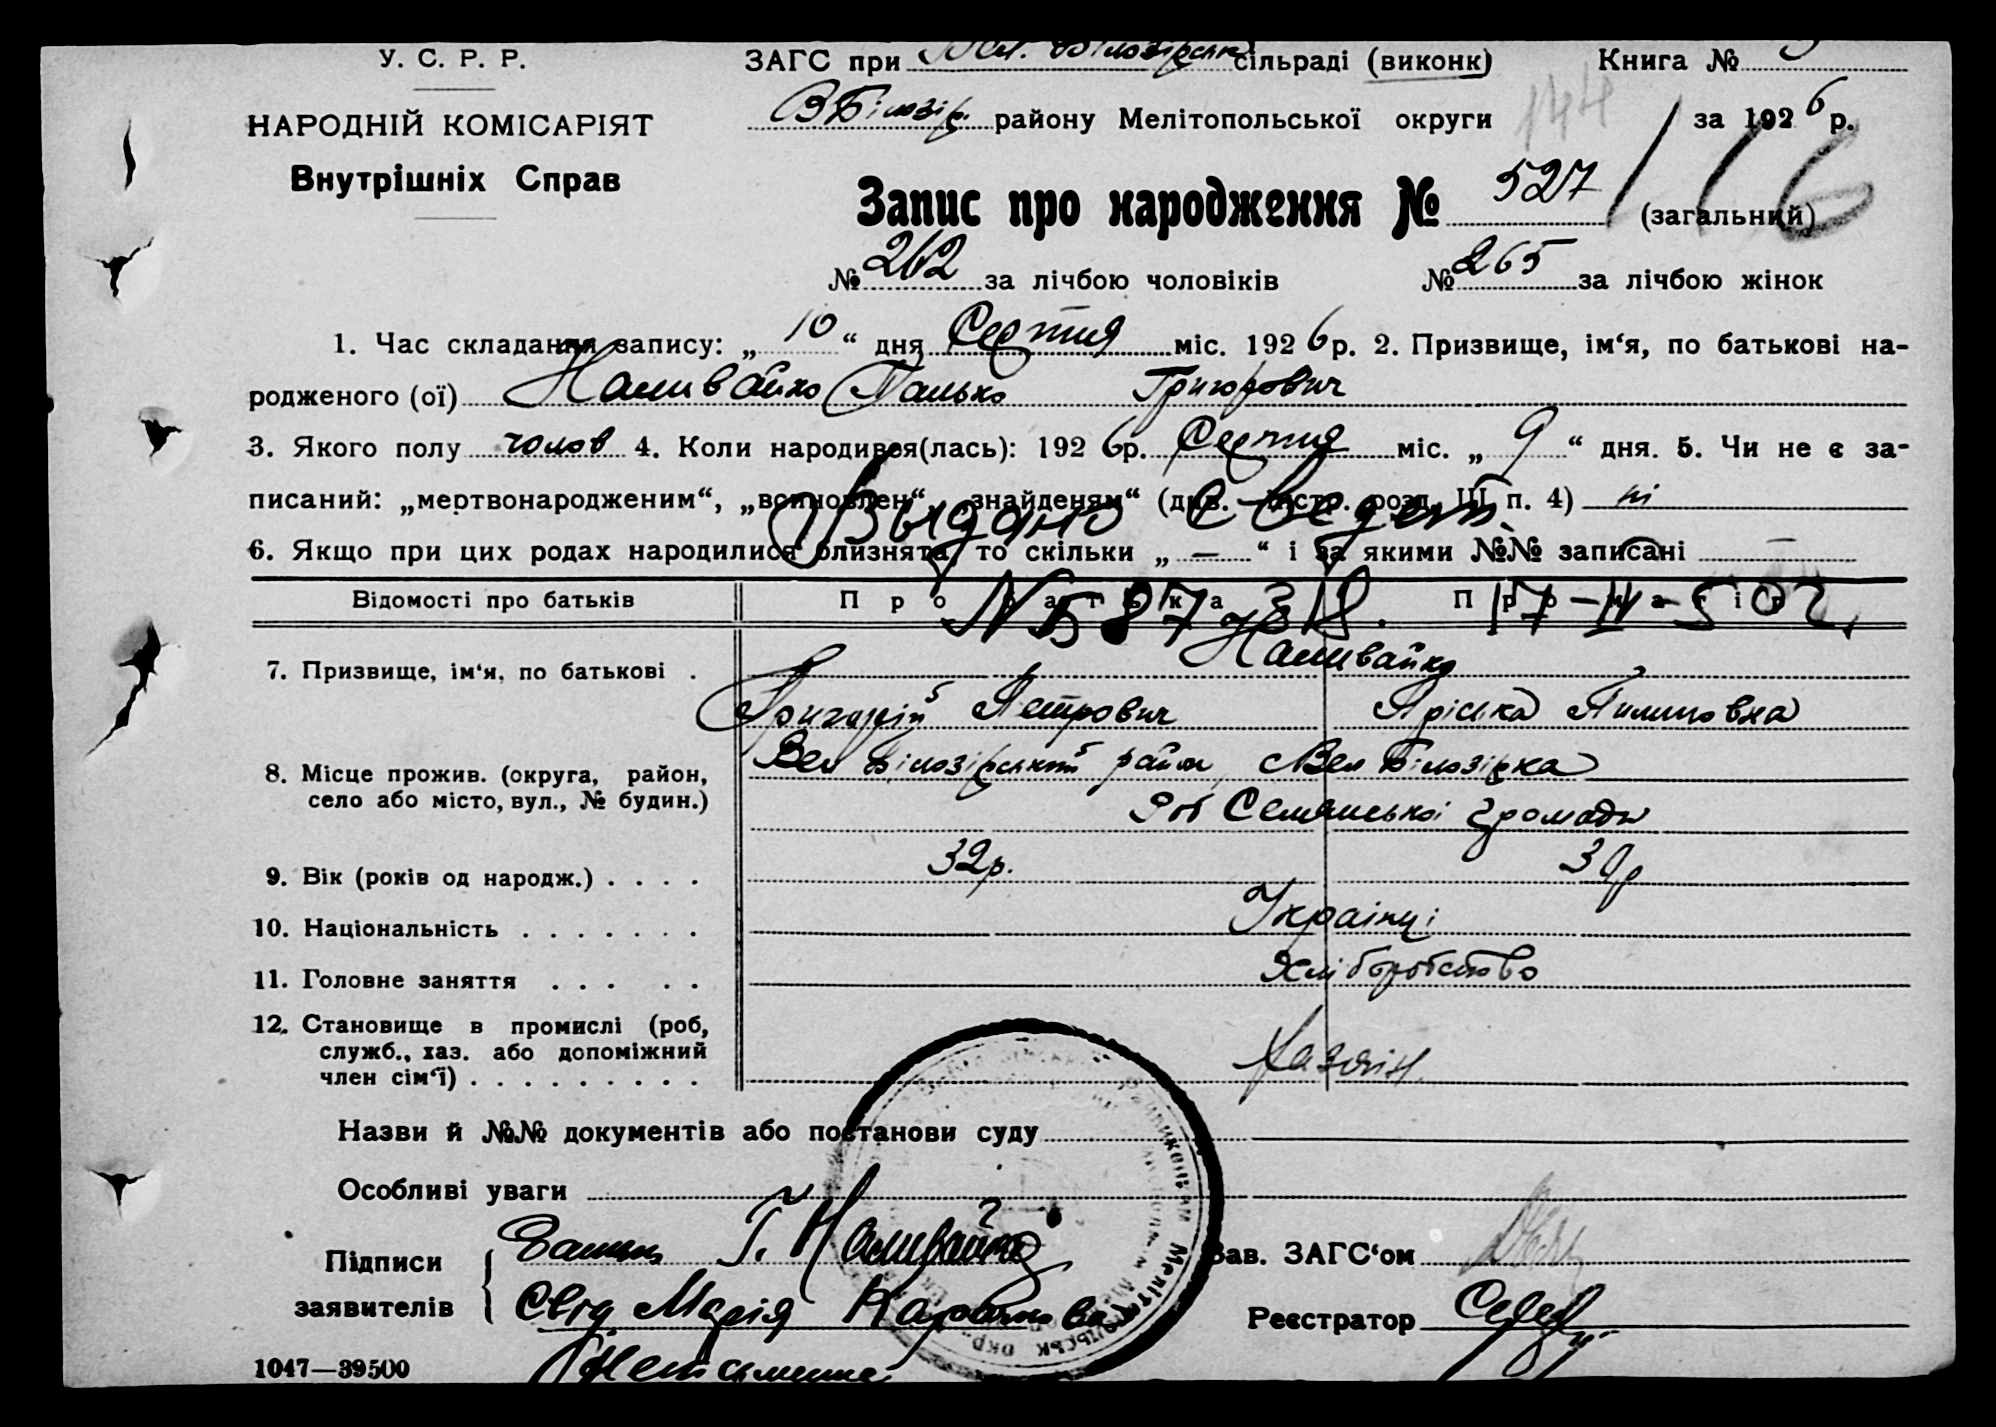 У. С. Р. Р.
ЗАГС при Вел. Білозірськ сільраді (виконк) Книга №
НАРОДНІЙ КОМІСАРІЯТ
В Білозір. району Мелітопольської округи 144 за 1926 р.
Внутрішніх Справ
Запис про народження № 527 (загальний) 116
№ 262 за лічбою чоловіків № 265 за лічбою жінок
1. Час складання запису: „ 10 “ дня Серпня міс. 1926 р. 2. Призвище, ім‘я, по батькові на-
родженого (ої) Наливайко Панько Григорович
3. Якого полу чолов 4. Коли народився(лась): 1926 р. Серпня міс. „ 9 “ дня. 5. Чи не є за-
писаний: „мертвонародженим“, „всиновлен“, „знайденям“ (див. інстр. розд. III п. 4) ні
Выдано сведет.
6. Якщо при цих родах народилися близнята, то скільки „ — “ і за якими №№ записані —
Відомості про батьків Про батька Про матір
Наливайко
7. Призвище, ім‘я, по батькові .
Григорій Петрович Пріська Пилиповна
8. Місце прожив. (округа, район,
село або місто, вул., № будин.)
Вел Білозірський район, Вел Білозірка
Селянської громади
9. Вік (років од народж.) . . . . 32р. 30р
10. Національність . . . . . . . Українці
11. Головне заняття . . . . . Хліборобство
12. Становище в промислі (роб,
служб., хаз. або допоміжний
член сім‘ї) . . . . . . . . . Хазяїн
Назви й №№ документів або постанови суду
Особливі уваги
Підписи
заявителів
Г. Наливайко
Марія
Зав. ЗАГС‘ом
Реєстратор
1047—39500